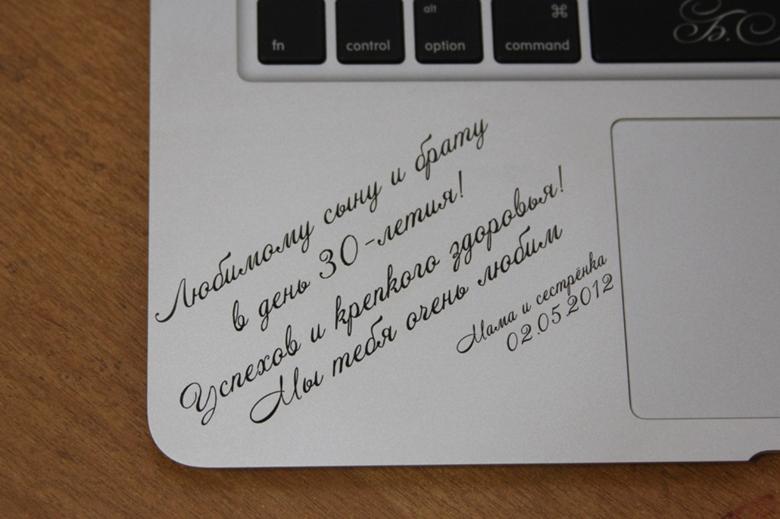 alt ⌘
fn control option command Б.С
Любимому сыну и брату
в день 30-летия!
Успехов и крепкого здоровья!
Мы тебя очень любим
Мама и сестрёнка
02.05.2012